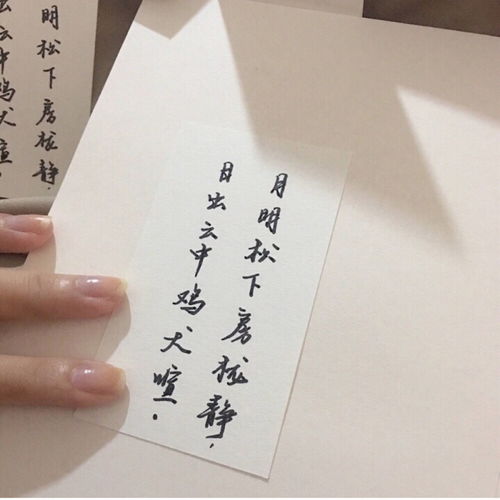 月明松下房栊静，
日出云中鸡犬喧．
明松下房栊静，
出云中鸡犬喧．